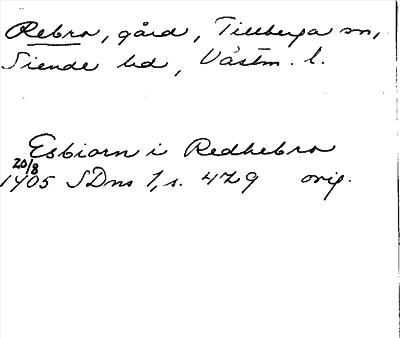 Rebra, gård, Tillberga sn,
Siende hd, Västm. l.
Esbiorn i Redhebro
20/8
1405 SDns 1, s. 479 orig.